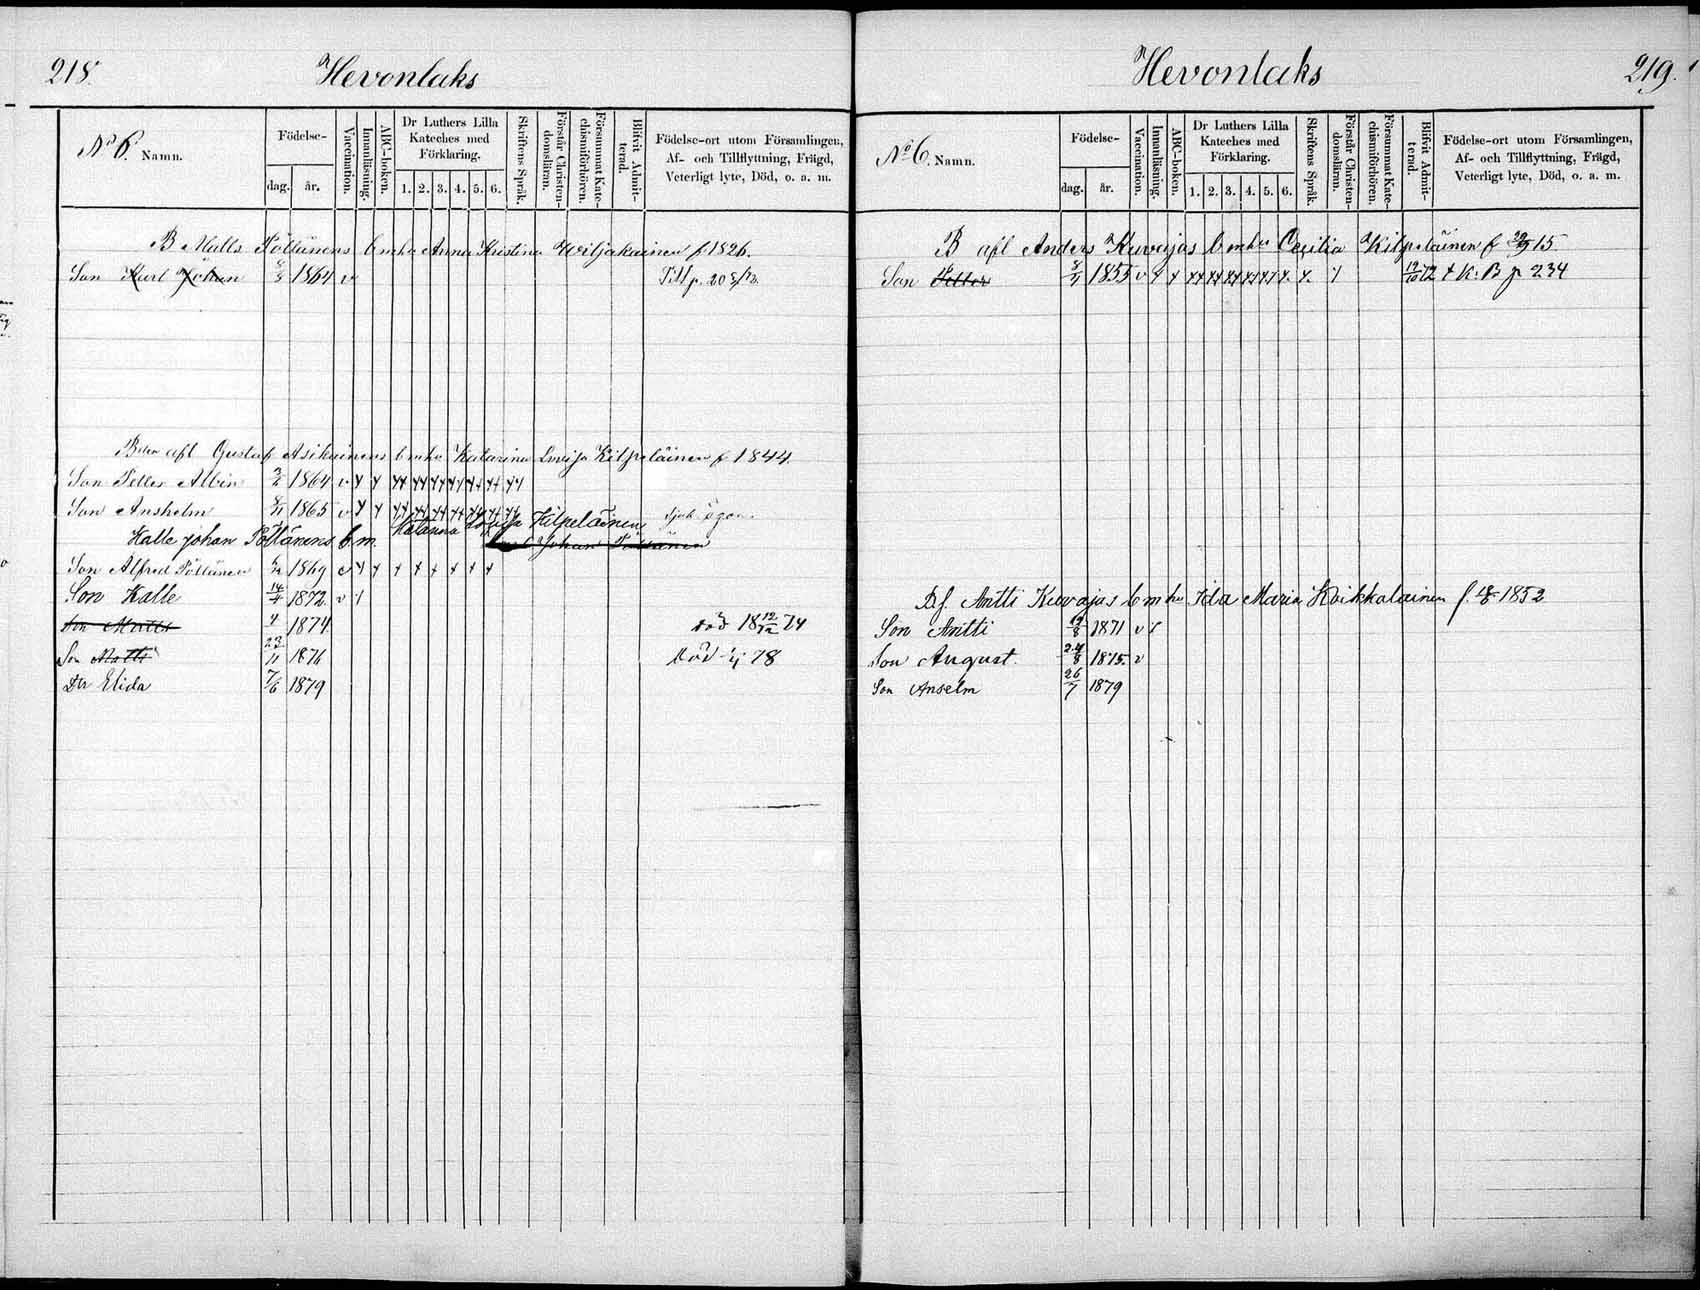 218.
Hevonlaks
No 6. Namn.
Födelse-
dag. år.
Vaccination.
Innanläsning.
ABC-boken.
Dr Luthers Lilla
Kateches med
Förklaring.
1. 2. 3. 4. 5. 6.
Skriftens Språk.
Förstår Christen-
domsläran.
Försummat Kate-
chismiförhören.
Blifvit Admit-
terad.
Födelse-ort utom Församlingen,
Af- och Tillflyttning, Frägd,
Veterligt lyte, Död, o. a. m.
B Matts Pöllänens b mhu Anna Kristina Wiljakainen f 1826.
Son Karl Johan 1864 v Till p. 20
Bdn afl Gustaf Asikainens b mhu Katarina Lovisa Kilpeläinen f 1844.
Son Petter Albin 1864 v
Son Anshelm 1865 v
Kalle Johan Pöllänens b.m. Katarina Lovisa Kilpeläinen
Karl Johan Pöllänen
Son Alfred Pöllänen 1869 v
Son Kalle 14/4 1872. v
Son Matts 1874. död 18 12/12 74
Son Matti 23/11 1876 död 78
Dtr Elida 7/6 1879
219.
Hevonlaks
No 6. Namn.
Födelse-
dag. år.
Vaccination.
Innanläsning.
ABC-boken.
Dr Luthers Lilla
Kateches med
Förklaring.
1. 2. 3. 4. 5. 6.
Skriftens Språk.
Förstår Christen-
domsläran.
Försummat Kate-
chismiförhören.
Blifvit Admit-
terad.
Födelse-ort utom Församlingen,
Af- och Tillflyttning, Frägd,
Veterligt lyte, Död, o. a. m.
B afl Anders Kuvajas b mhu Cecilia Kilpeläinen f 15.
Son Petter 1855 v 19/10 72 K: B p 234
B.f. Antti Kuvajas b mhu Ida Maria Koikkalainen f. 1852
Son Antti 19/8 1871 v
Son August. 24/8 1875. v
Son Anselm 26/7 1879